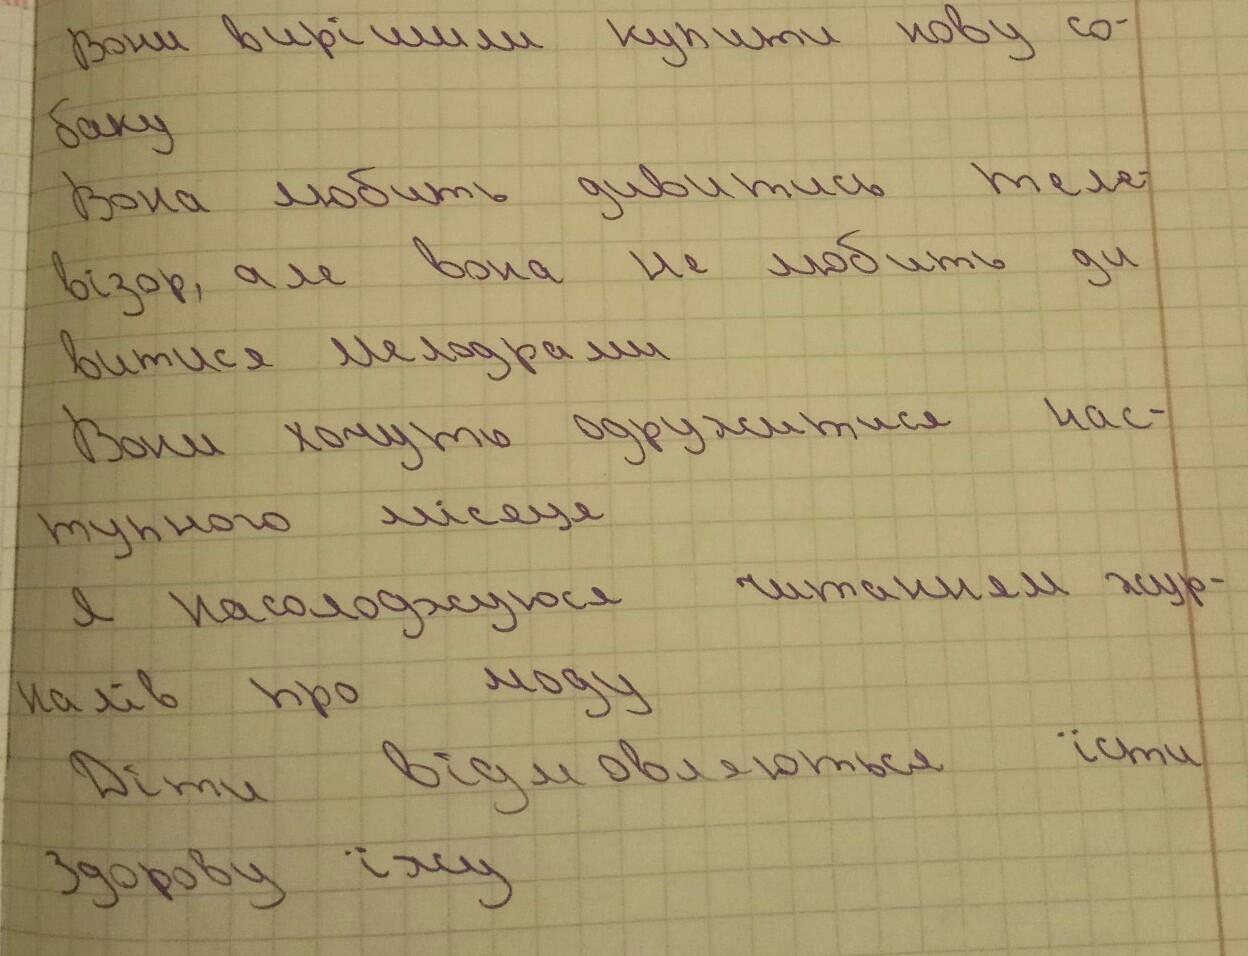 Вони вирішили купити нову со-
баку
Вона любить дивитись теле-
візор, але вона не любить ди
витися мелодрами
Вони хочуть одружитися нас-
тупного місяця
Я насолоджуюся читанням жур-
налів про моду
Діти відмовляються їсти
здорову їжу